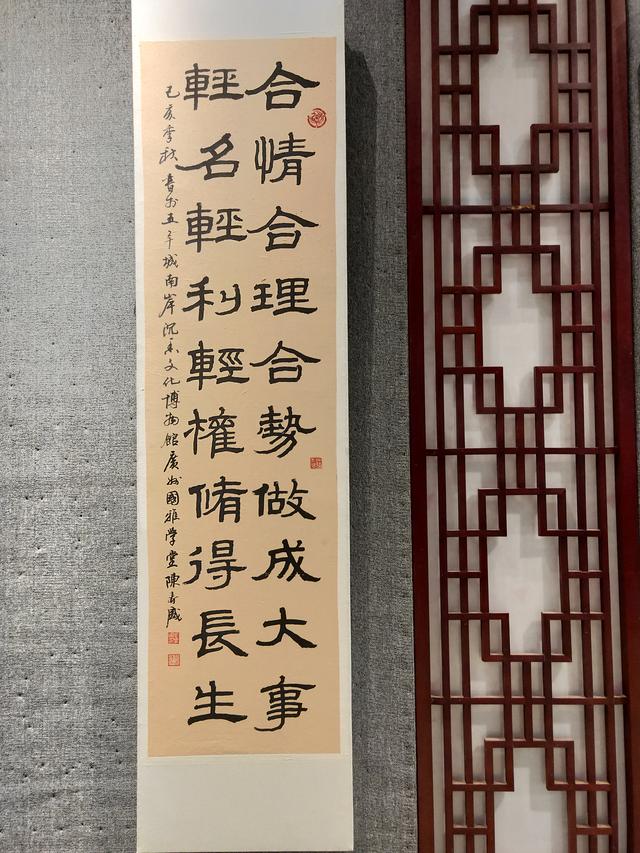 合情合理合勢做成大事
輕名輕利輕權脩得長生
己亥季秋書於五羊城南岸沉香文化博物館廣州國雅學堂陳有盛